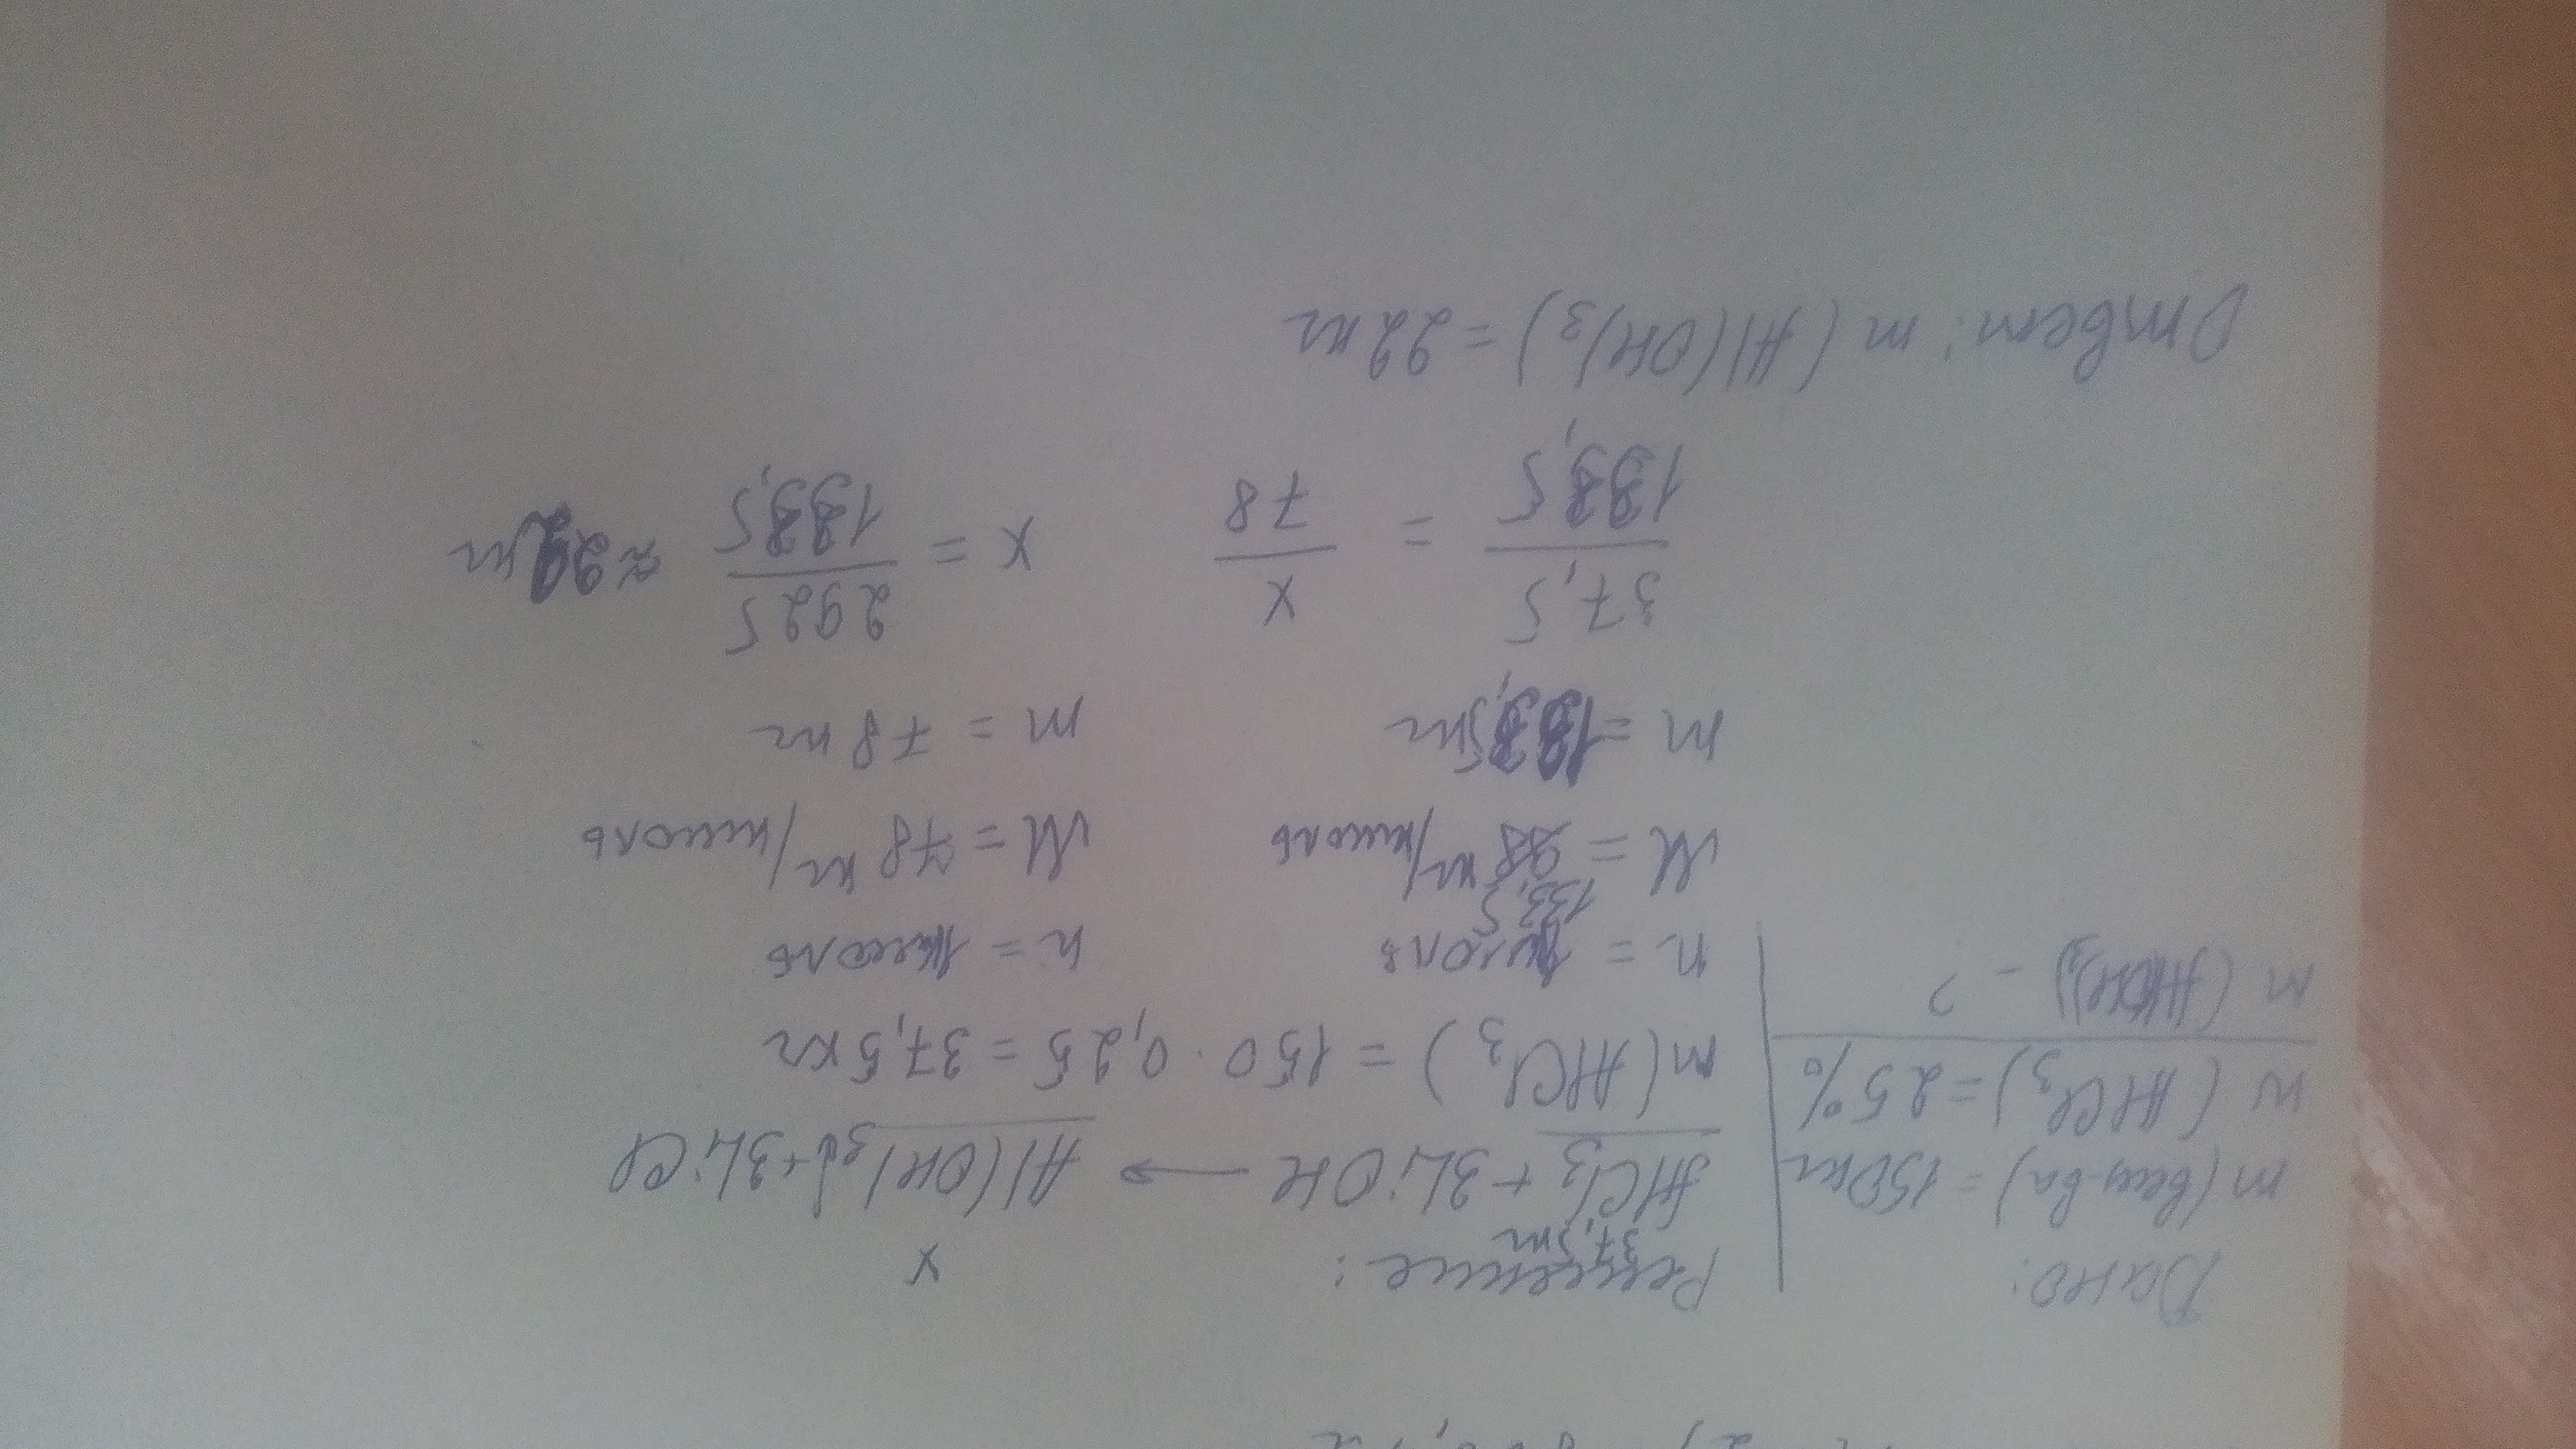 Дано:
m(вещ-ва) = 150кг
w(AlCl3) = 25%
m(Al(OH)3) - ?
Решение:
37,5кг x
AlCl3 + 3LiOH → Al(OH)3↓ + 3LiCl
m(AlCl3) = 150 · 0,25 = 37,5кг
n = 1кмоль n = 1кмоль
133,5
M = 98 кг/кмоль M = 78 кг/кмоль
m = 133,5кг m = 78 кг
37,5/133,5 = x/78 x = 2925/133,5 ≈ 22кг
Ответ: m(Al(OH)3) = 22кг